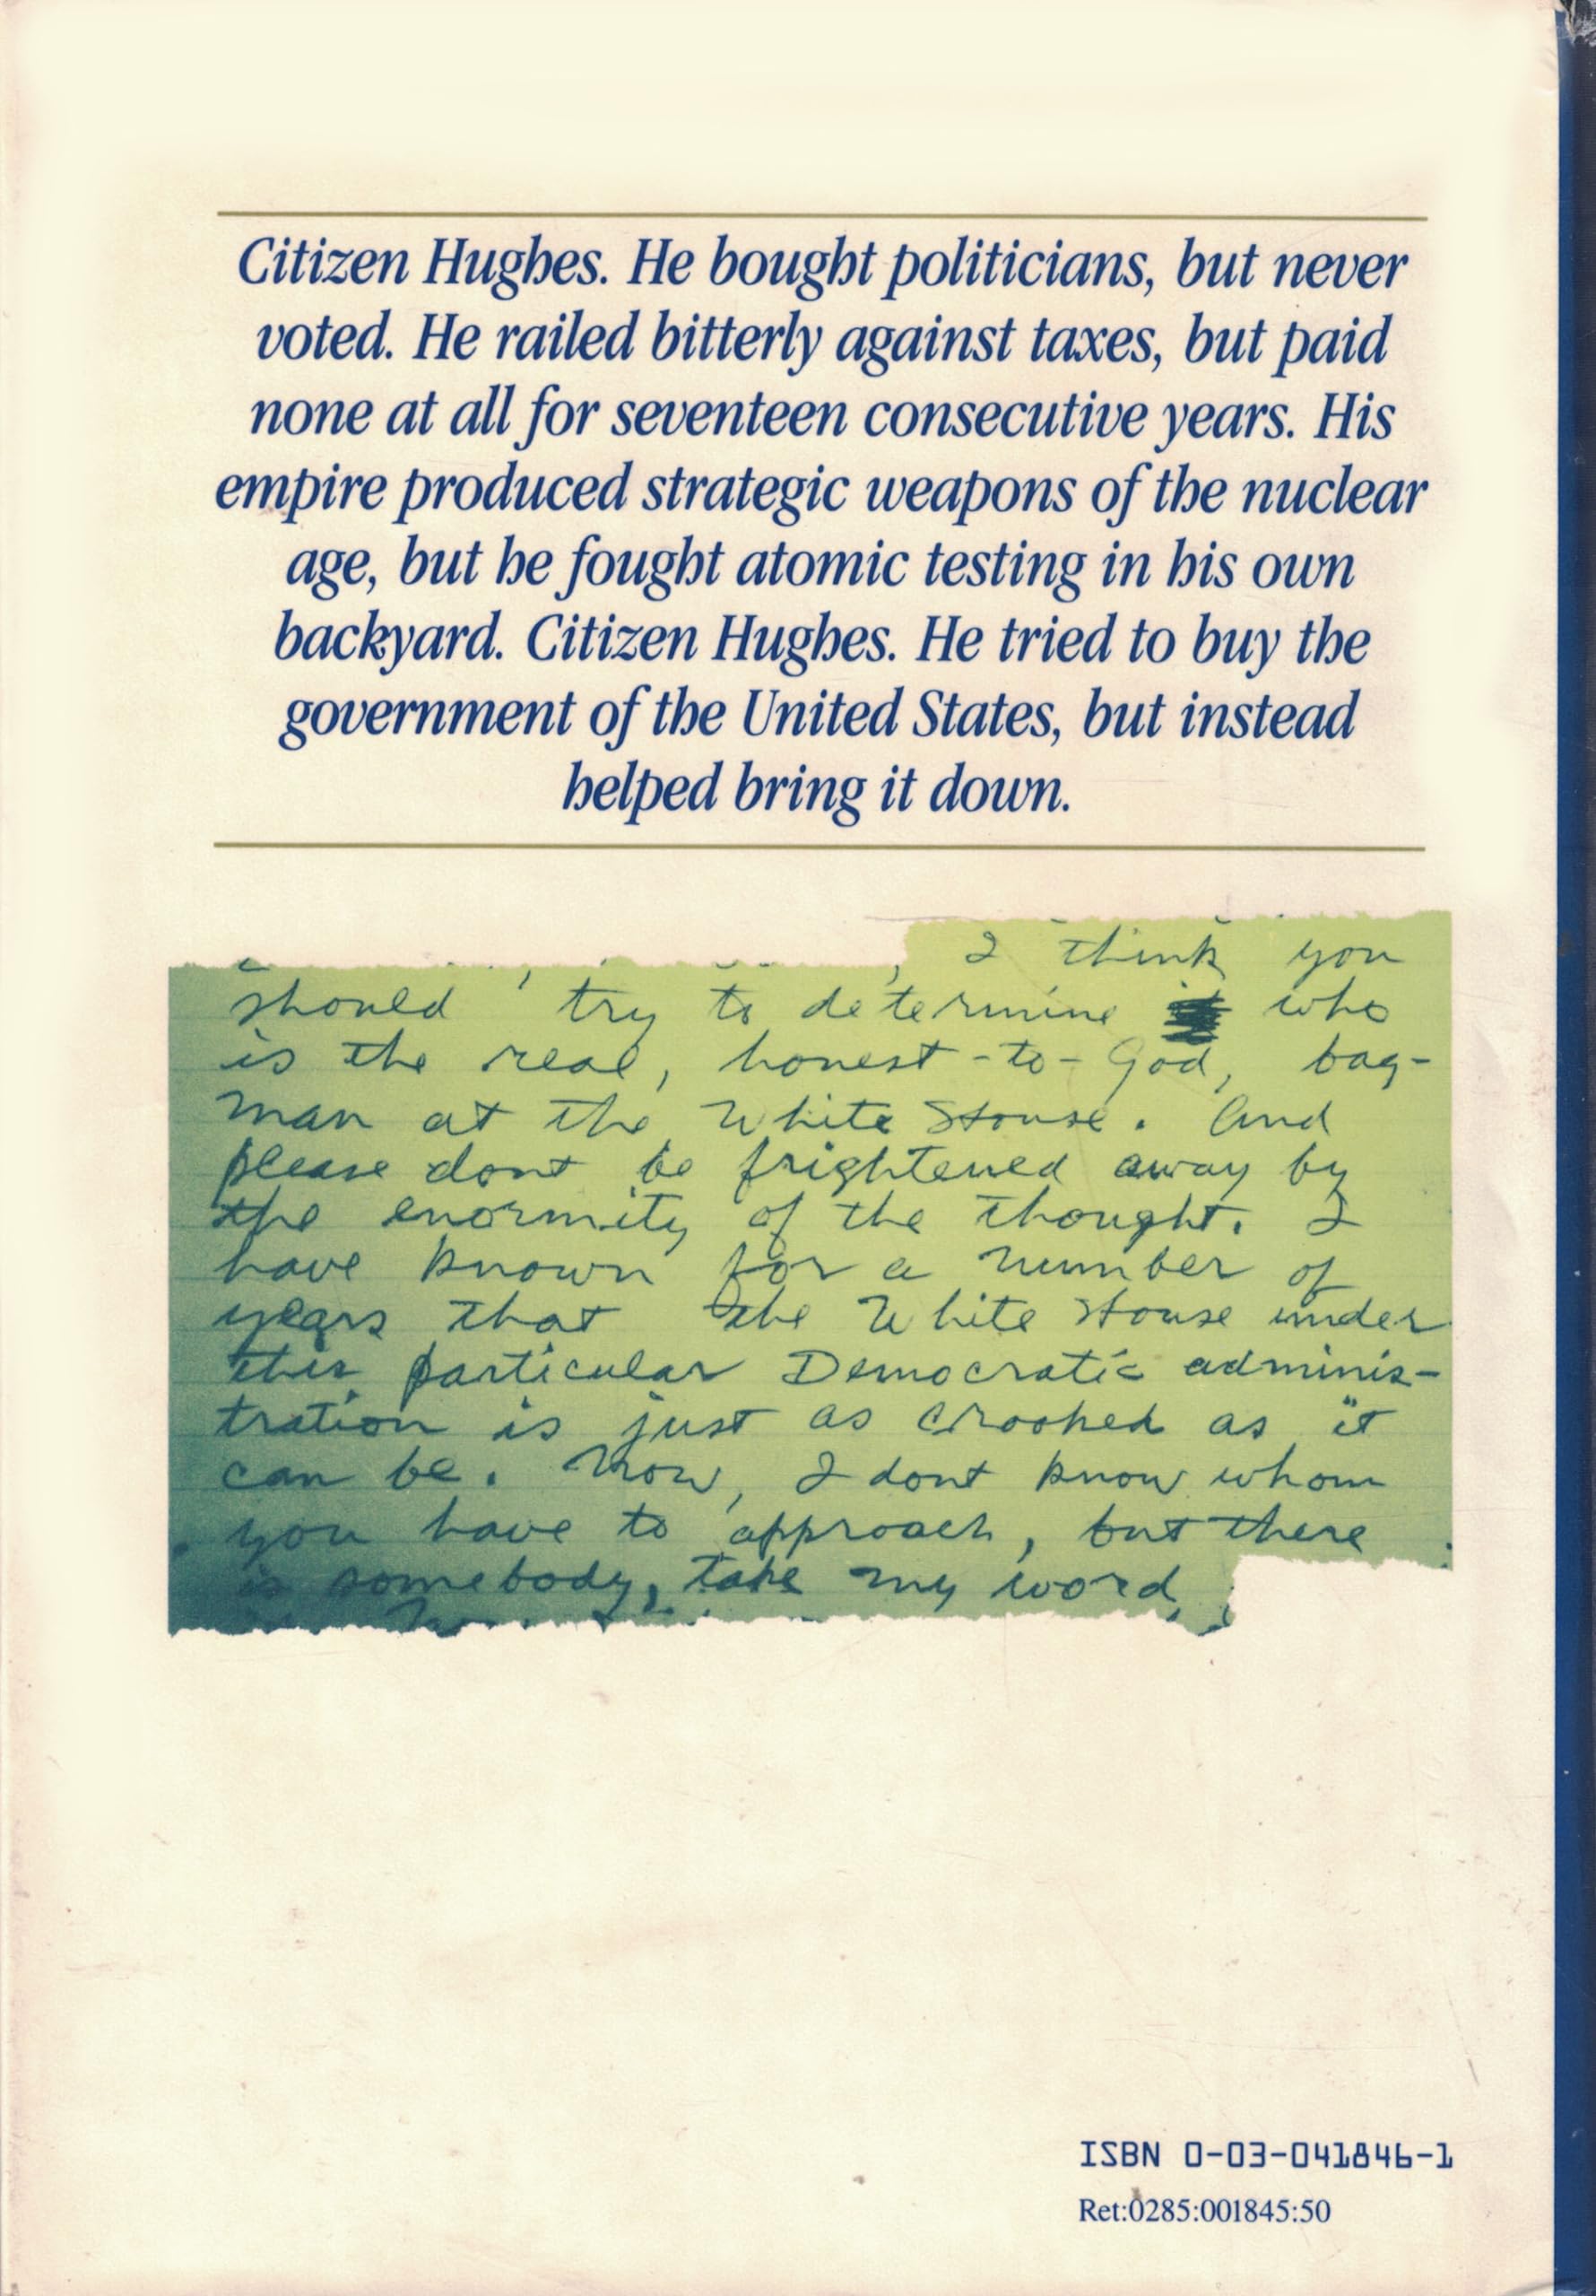 Citizen Hughes. He bought politicians, but never
voted. He railed bitterly against taxes, but paid
none at all for seventeen consecutive years. His
empire produced strategic weapons of the nuclear
age, but he fought atomic testing in his own
backyard. Citizen Hughes. He tried to buy the
government of the United States, but instead
helped bring it down.
I think you
should try to determine who
is the real, honest-to-God, bag-
man at the White House. And
please dont be frightened away by
the enormity of the thought. I
have known for a number of
years that the White House under
this particular Democratic adminis-
tration is just as crooked as it
can be. Now, I dont know whom
you have to approach, but there
is somebody, take my word
ISBN 0-03-041846-1
Ret:0285:001845:50